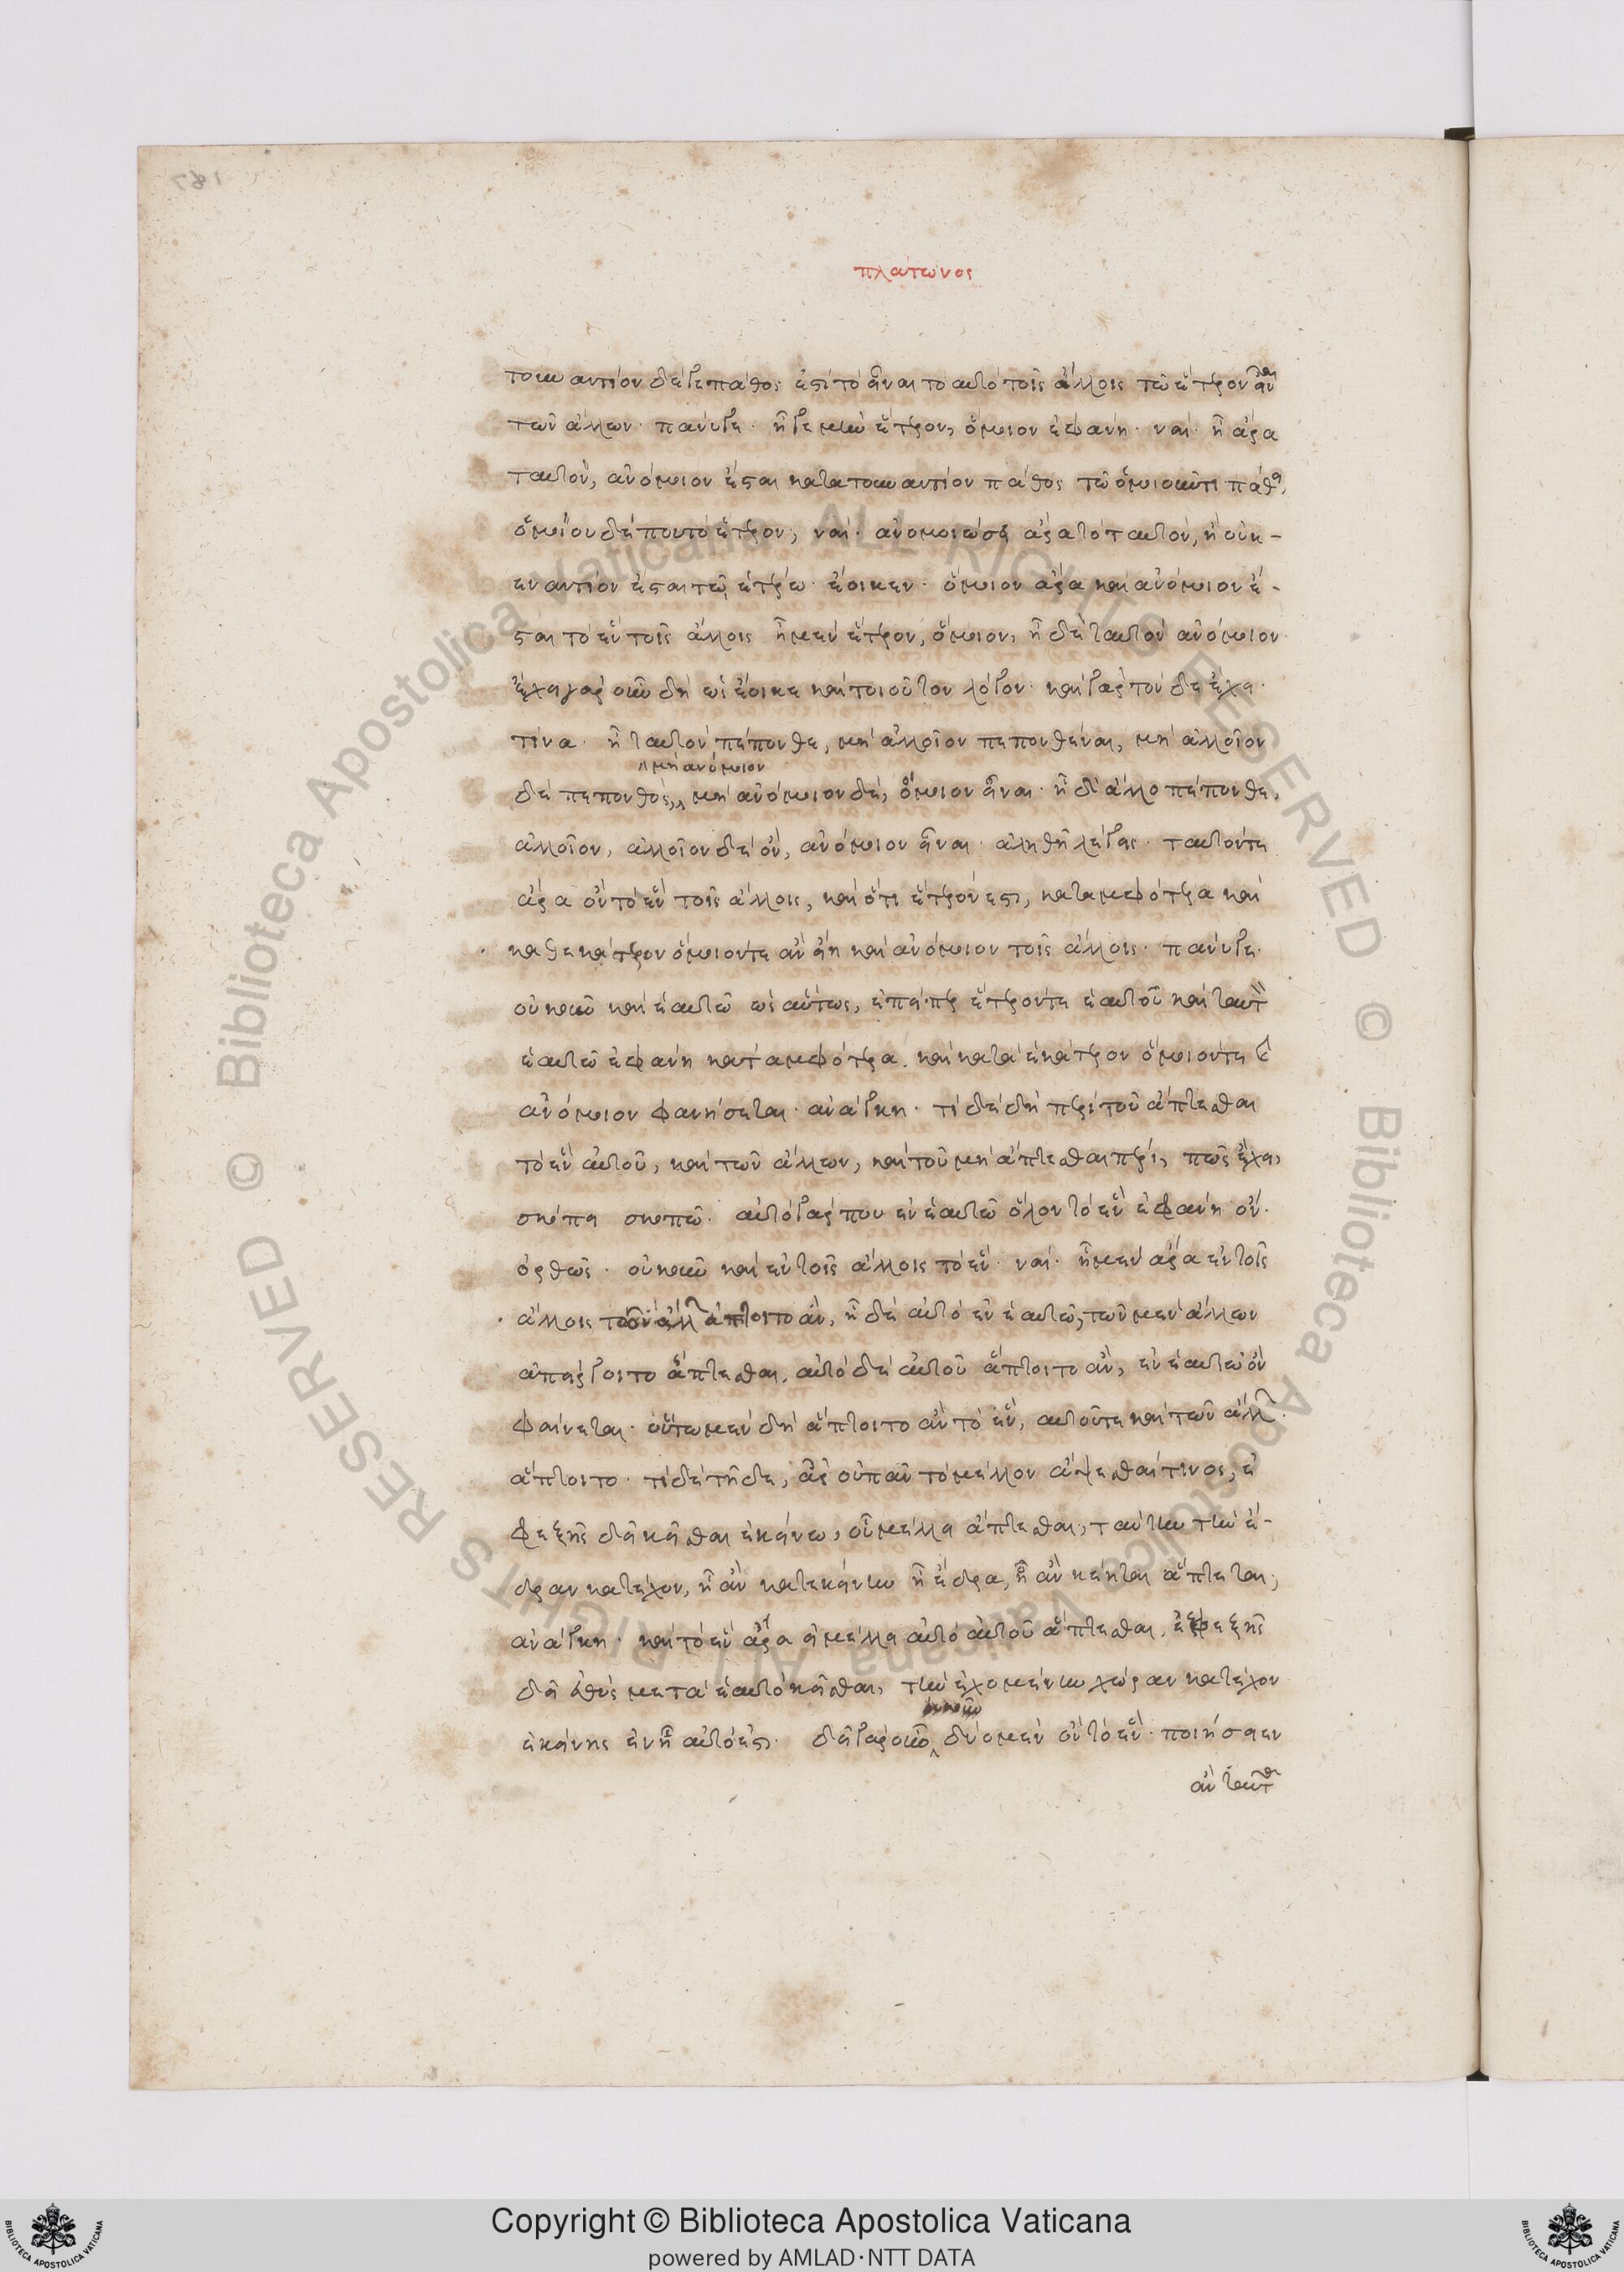 πλάτωνος
τοὐναντίον δέ γε πάθος ἐστὶ τὸ εἶναι ταὐτὸ τοῖς ἄλλοις τῶ ἕτερον εἶναι
τῶν ἄλλων· πάνυ γε· ἧ γε μὴν ἕτερον, ὅμοιον ἐφάνη· ναί· ἧ ἄρα
ταυτόν, ἀνόμοιον ἔσται κατὰ τοὐναντίον πάθος τῶ ὁμοιοῦντι πάθει,
ὁμοίου δέ που τὸ ἕτερον; ναί· ἀνομοιώσει ἄρα τὸ ταυτόν, ἢ οὐκ-
ἐναντίον ἔσται τῶ ἑτέρω· ἔοικεν· ὅμοιον ἄρα καὶ ἀνόμοιον ἔ-
σται τὸ ἓν τοῖς ἄλλοις ἧ μὲν ἕτερον, ὅμοιον, ἧ δὲ ταυτὸν ἀνόμοιον
ἔχει γὰρ οὖν δὴ ὡς ἔοικε καὶ τοιοῦτον λόγον· καὶ γὰρ τόνδε ἔχει·
τίνα· ἧ ταυτὸν πέπονθε, μὴ ἀλλοῖον πεπονθέναι, μὴ ἀλλοῖον
μὴ ἀνόμοιον
δὲ πεπονθὸς, μὴ ἀνόμοιον δέ, ὅμοιον εἶναι· ἧ δ' ἄλλο πέπονθε,
ἀλλοῖον, ἀλλοῖον δὲ ὄν, ἀνόμοιον εἶναι· ἀληθῆ λέγεις· ταυτόν τε
ἄρα ὂν τὸ ἓν τοῖς ἄλλοις, καὶ ὅτι ἕτερόν ἐστι, κατ' ἀμφότερα καὶ
καθ' ἑκάτερον ὅμοιόν τε ἂν εἴη καὶ ἀνόμοιον τοῖς ἄλλοις· πάνυ γε·
οὐκοῦν καὶ ἑαυτῶ ὡσαύτως, ἐπείπερ ἕτερόν τε ἑαυτοῦ καὶ ταυτὸν
ἑαυτῶ ἐφάνη κατ' ἀμφότερα. καὶ κατὰ ἑκάτερον ὅμοιόν τε καὶ
ἀνόμοιον φανήσεται· ἀνάγκη· τί δὲ δὴ περὶ τοῦ ἅπτεσθαι
τὸ ἓν αὐτοῦ, καὶ τῶν ἄλλων, καὶ τοῦ μὴ ἅπτεσθαι πέρι, πῶς ἔχει,
σκόπει σκοπῶ· αὐτὸ γάρ που ἐν ἑαυτῶ ὅλον τὸ ἓν ἐφάνη ὄν·
ὀρθῶς· οὐκοῦν καὶ ἐν τοῖς ἄλλοις τὸ ἕν· ναί· ἧ μὲν ἄρα ἐν τοῖς
ἄλλοις τῶν ἄλλων ἅπτοιτο ἄν, ἧ δὲ αὐτὸ ἐν ἑαυτῶ, τῶν μὲν ἄλλων
ἀπείργοιτο ἅπτεσθαι, αὐτὸ δὲ αὐτοῦ ἅπτοιτο ἄν, ἐν ἑαυτῶ ὄν
φαίνεται· οὕτω μὲν δὴ ἅπτοιτο ἂν τὸ ἕν, αὐτοῦ τε καὶ τῶν ἄλλων·
ἅπτοιτο· τί δὲ τῆδε, ἆρ' οὐ πᾶν τὸ μέλλον ἅψεσθαί τινος, ἐ
φεξῆς δεῖ κεῖσθαι ἐκείνω, οὗ μέλλει ἅπτεσθαι, ταύτην τὴν ἕ-
δραν κατέχον, ἣ ἂν κατ' ἐκείνην ἧ ἕδρα, ἧ ἂν κέηται ἅπτεται;
ἀνάγκη· καὶ τὸ ἓν ἄρα εἰ μέλλει αὐτὸ αὑτοῦ ἅπτεσθαι, ἐφεξῆς
δεῖ εὐθὺς μετὰ ἑαυτὸ κεῖσθαι, τὴν ἐχομένην χώραν κατέχον
ἐκείνης ἐν ἧ αὐτό ἐστι· δεῖ γὰρ οὖν δύο μὲν ὂν τὸ ἕν· ποιήσειεν
ἂν ταῦτα